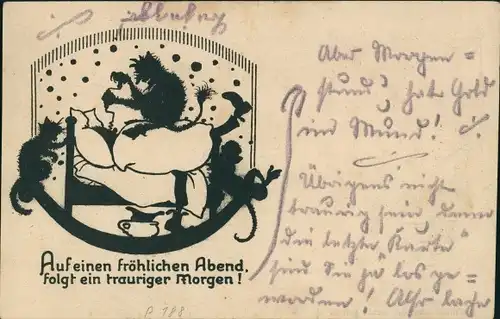 Auf einen fröhlichen Abend,
folgt ein trauriger Morgen!
Aber Morgen =
stund, hat Gold
im Mund!
Übrigens nicht
traurig sein, denn
die letzte "Karte"
sind Sie ja los ge-
worden! Also lache
P 188